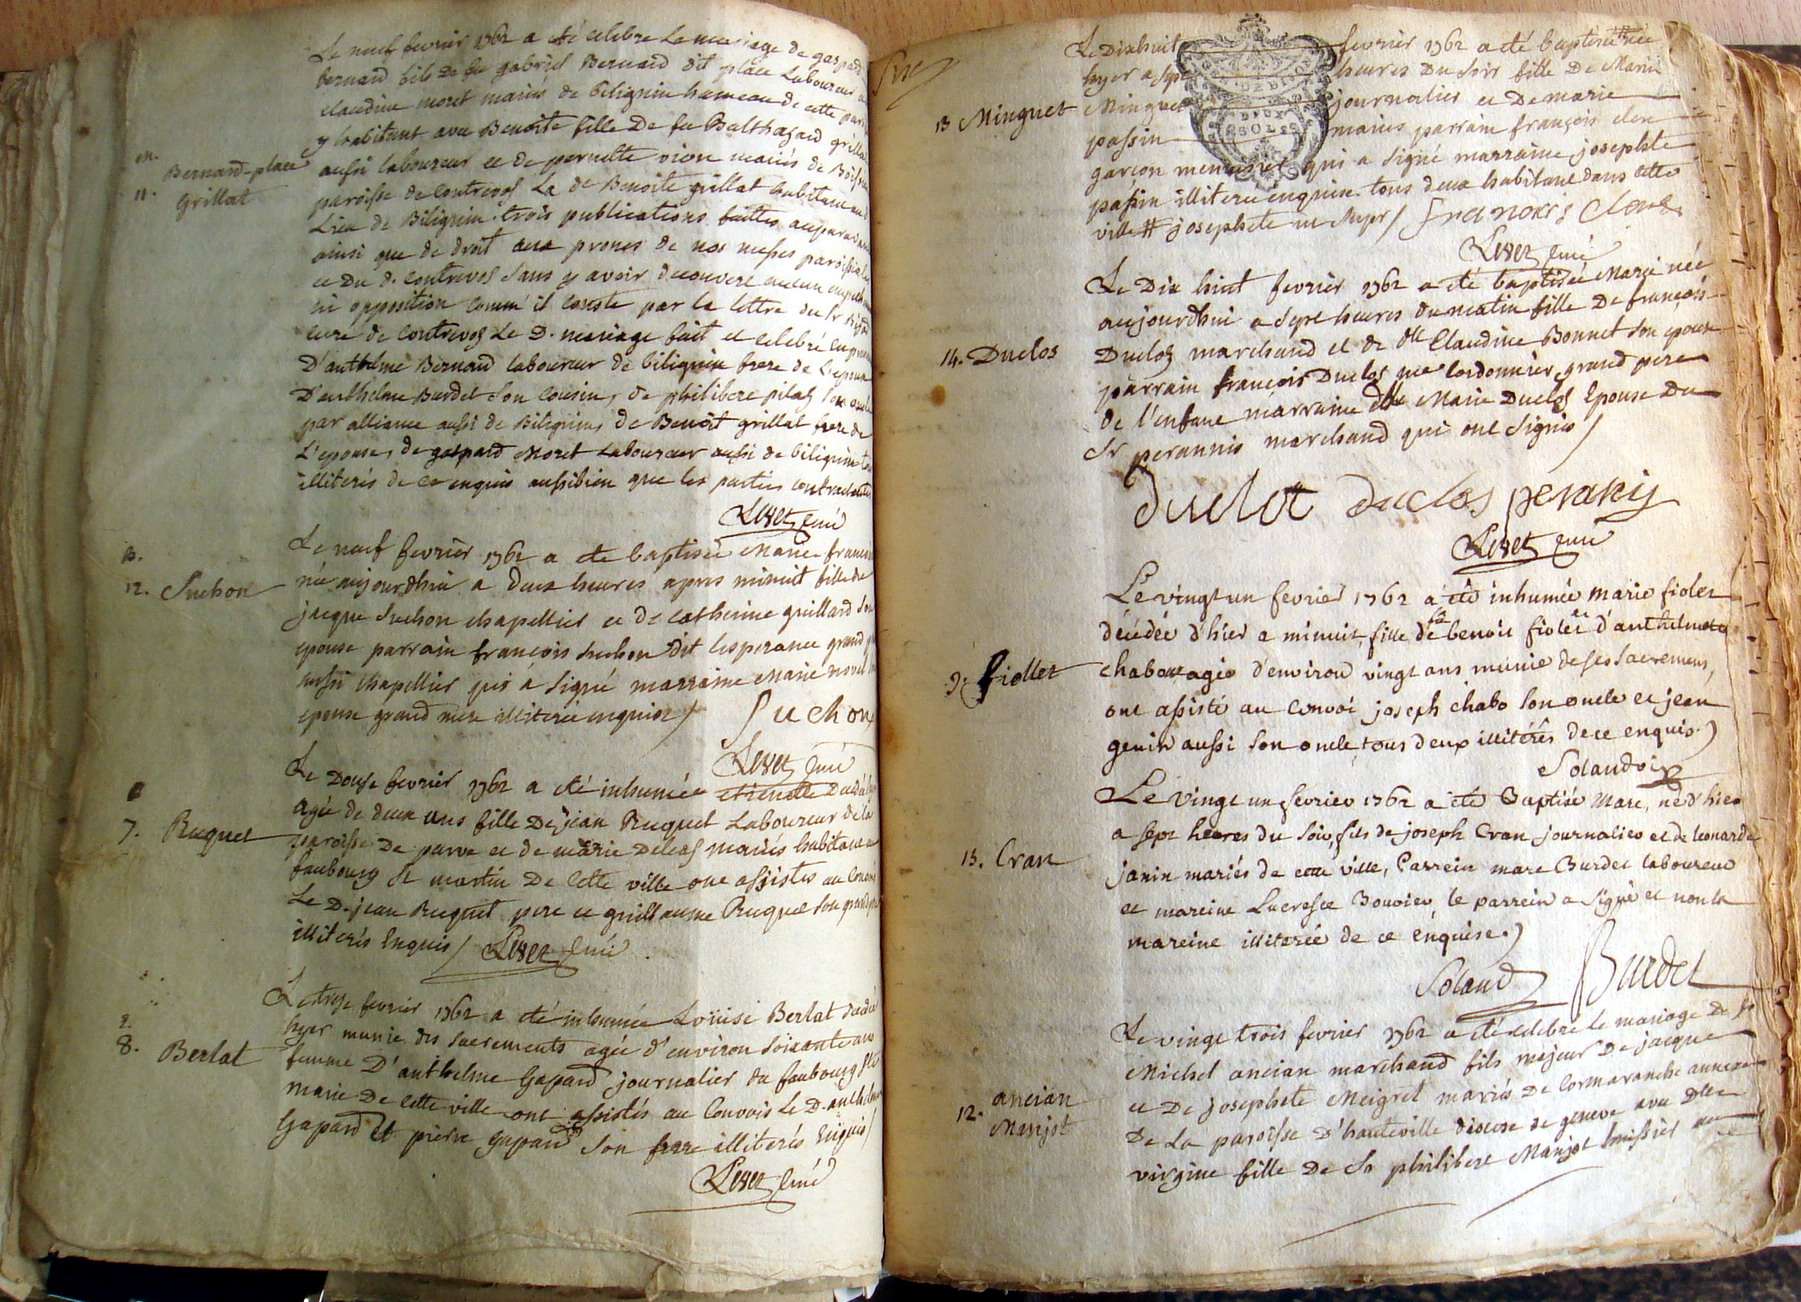 Le neuf fevrier 1762 a été celebré Le mariage de gaspard
bernard fils de fu gabriel Bernard dit place Laboureur
claudine moret mariés de bilignin hameau de cette
y habitant avec Benoite fille De fu Balthazard
m. Bernard-place
11. Grillat
aussi laboureur et de pernette vion mariés de
paroisse de contrevos La de Benoite grillat habitant
Lieu de Bilignin. trois publications faittes
ainsi que de droit aux prones de nos messes
et Du d. Contrevos Sans y avoir decouvert aucun
ni opposition Comm' il conste par la lettre du Sr
curé de Contrevos Le D. mariage fait et celebré
D'anthelme Bernard laboureur de bilignin frere de L'epoux
D'anthelme Burdet Son Cousin, de philibert pilas Son
par alliance aussi de Bilignin, de Benoit grillat frere de
L'epouse, de gaspard Moret Laboureur aussi de bilignin
illiterés de ce enquis aussibien que les parties contractantes
Levet curé
Le neuf fevrier 1762 a été baptisée Marie
née aujourdhui a deux heures apres minuit fille de
B.
12. Suchon
jacque Suchon chapellier et de catherine guillard
epouse parrain françois Suchon dit Lesperance grand
aussi chapellier qui a signé marraine Marie
epouse grand mere illiterée enquise)
Suchon
Levet curé
Le Douze fevrier 1762 a été inhumée etiennette
agée de deux ans fille De jean Ruquet Laboureur de la
7. Ruquet
paroisse de parve et de marie mariés habitant
faubourg St martin De Cette ville ont assistés au Convoi
Le D. jean Ruquet pere et guillaume Ruquet Son
illiterés Enquis) Levet curé
Le treze fevrier 1762 a été inhumée Loüise Berlat
hyer munie des Sacrements agée d'environ Soixante ans
8. Berlat
femme D'anthelme Gapard journalier du faubourg
Marie de Cette ville ont assistés au Convois Le D. anthelme
Gapard et pierre Gapard Son frere illiterés Enquis)
Levet Curé
Le Dixhuit fevrier 1762 a été baptisée
hyer a sept heures Du Soir fille De Marin
13 Minguet
Minguet journalier et De marie
passin mariés parrain françois
garçon menusier qui a signé marraine josephte
passin illiterée enquise tous deux habitant dans cette
ville # josephte
Levet curé
Le Dix huit fevrier 1762 a été baptisée Marie née
aujourdhui a Sept heures du matin fille De françois
14. Duclos
Duclos marchand et de dlle Claudine Bonnet Son epouse
parrain françois Duclos me Cordonnier grand pere
de l'enfant marraine dlle Marie Duclos Epouse Du
Sr perannis marchand qui ont Signés)
duclot duclos perany
Levet curé
Le vingt un fevrier 1762 a été inhumée marie fiolet
décédée d'hier a minuit, fille de benoit fiolet d'anthelmete
9. fiollet
chabo agée d'environ vingt ans munie de ses Sacremens,
ont assisté au Convoi joseph chabo Son oncle et jean
genin aussi Son oncle, tous deux illitérés de ce enquis.)
Solandoir
Le Vingt un fevrier 1762 a été Baptisé Marc, né d'hier
a sept heures du Soir, fils de joseph Cran journalier et de leonarde
15. Cran
janin mariés de cette ville, Parrein marc Burdet laboureur
et mareine Lucresce Bouvier, le parrein a signé et non la
mareine illiterée de ce enquise.)
Soland Burdet
Le vingt trois fevrier 1762 a été celebré Le mariage De Sr
Michel ancian marchand fils majeur De jacque
12. ancian Manjot
et De josephte Meigret mariés De Cormaranche annexe
De La paroisse D'hauteville diocese de geneve avec Dlle
virgine fille De Sr philibert Manjot huissier